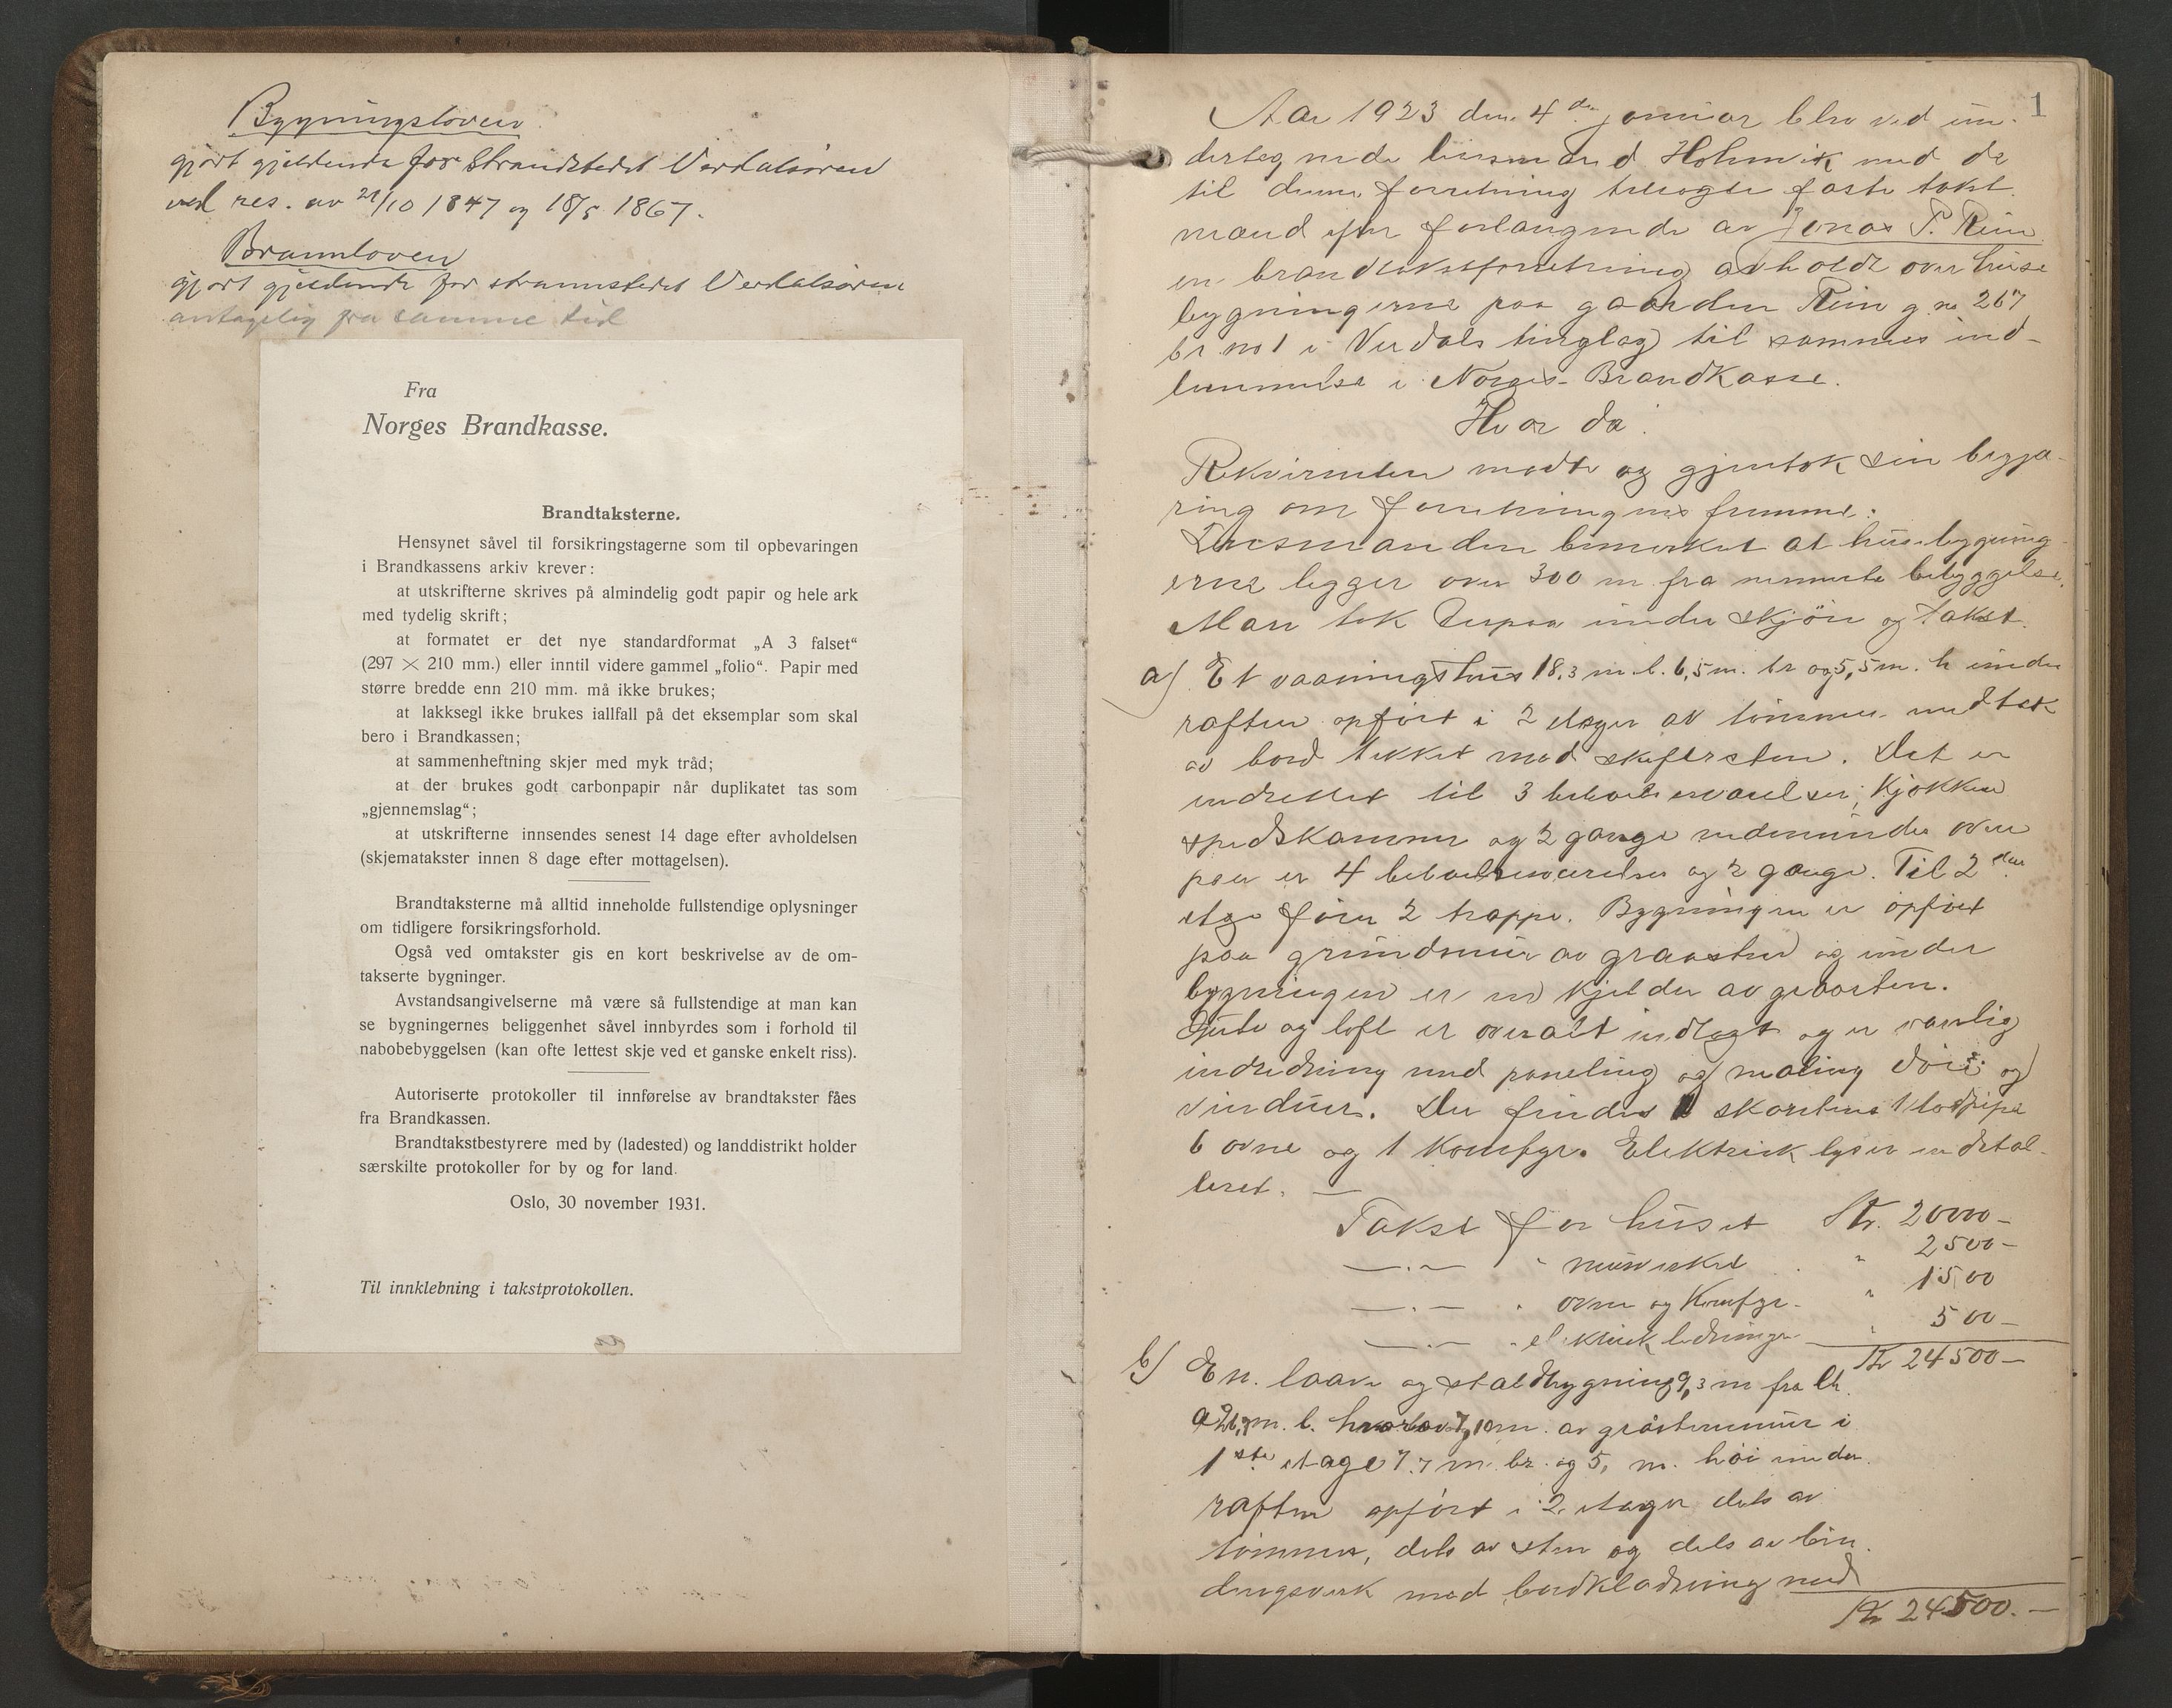 Bygningsloven
gjort gjeldende for Strandstedet Verdalsøren
ved res. av 21/10 1847 og 18/5 1867.
Brannloven
gjort gjeldende for strannstedet Verdalsøren
antagelig fra samme tid
Fra
Norges Brandkasse.
Brandtaksterne.
Hensynet såvel til forsikringstagerne som til opbevaringen
i Brandkassens arkiv krever:
at utskrifterne skrives på almindelig godt papir og hele ark
med tydelig skrift;
at formatet er det nye standardformat „A 3 falset“
(297 × 210 mm.) eller inntil videre gammel „folio“. Papir med
større bredde enn 210 mm. må ikke brukes;
at lakksegl ikke brukes iallfall på det eksemplar som skal
bero i Brandkassen;
at sammenheftning skjer med myk tråd;
at der brukes godt carbonpapir når duplikatet tas som
„gjennemslag“;
at utskrifterne innsendes senest 14 dage efter avholdelsen
(skjematakster innen 8 dage efter mottagelsen).
Brandtaksterne må alltid inneholde fullstendige oplysninger
om tidligere forsikringsforhold.
Også ved omtakster gis en kort beskrivelse av de om-
takserte bygninger.
Avstandsangivelserne må være så fullstendige at man kan
se bygningernes beliggenhet såvel innbyrdes som i forhold til
nabobebyggelsen (kan ofte lettest skje ved et ganske enkelt riss).
Autoriserte protokoller til innførelse av brandtakster fåes
fra Brandkassen.
Brandtakstbestyrere med by (ladested) og landdistrikt holder
særskilte protokoller for by og for land.
Oslo, 30 november 1931.
Til innklebning i takstprotokollen.
1
Aar 1923 den 4de januar blev ved un-
dertegnede lensmand Holmvik med de
til denne forretning tilsagte faste takst
mænd efter forlangende av Jonas P. Rein
en brandtakstforretning avholdt over huse
bygningerne paa gaarden Rein g. no 267
br. no 1 i Verdals tinglag til sammes ind-
lemmelse i Norges Brandkasse.
Hvor da:
Rekvirenten mødte og gjentok sin begjæ-
ring om forretningens fremme.
Lensmanden bemerket at husebygning-
erne ligger over 300 m fra nermeste bebyggelse.
Man tok derpaa under skjøn og takst.
a) Et vaaningshus 18,3 m l. 6,5 m. br og 5,5 m. h under
raften opført i 2 etager av tømmer med tak
av bord tekket med skifersten. Det er
indrettet til 3 beboelsesværelser, kjøkken
spiskammer og 2 gange nedenunder oven
paa er 4 beboelsesværelser og 2 gange. Til 2den
etage fører 2 trappe. Bygningen er opført
paa grundmur av graasten og under
bygningen er en kjelder av graasten.
Gulv og loft er overalt indlagt og er vanlig
indredning med paneling og maling døre og
vinduer. Der findes 1 skorstens 1 pipe
6 ovne og 1 komfyr. Elektrisk lys er indstal-
leret. —
Takst for huset Kr. 20000 –
—.— " murverket " 2500 –
—.— " ovne og komfyr – " 1500
—.— " elektrisk ledninger " 500 –
Kr 24500 –
b) En laave og staldbygning 9,3 m fra litr.
a 26,7 m. l. hvorav 7,10 m. av gråstensmur i
1ste etage 7.7 m. br. og 5, m. høi under
raften opført i 2 etager dels av
tømmer, dels av sten og dels av bin
dingsverk med bordklædning med
Kr 24500. —